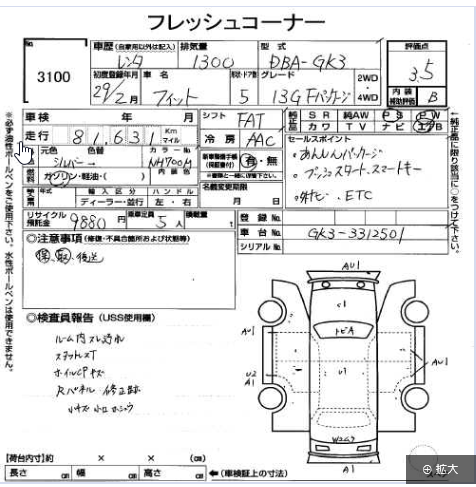 フレッシュコーナー
No.
3100
車歴(自家用以外は記入)
レンタ
排気量
1300
型式
DBA-GK3
評価点
3.5
初度登録年月
29/2月
車名
フィット
ドア数
5
グレード
13G Fパッケージ
2WD
4WD
内装
補助評価
B
車検
年 月
シフト
FAT
純正品
SR 純AW PS PW
カワ TV ナビ エアB
走行
81,631
Km
マイル
冷房
AAC
セールスポイント
・あんしんパッケージ
・プッシュスタート、スマートキー
・社外ナビ、ETC
元色 色替
シルバー
カラーNo.
NH700M
内装色
新車整備手帳
(保証書付)
有・無
燃料
ガソリン・軽油・( )
年式 輸入区分 ハンドル
ディーラー・並行 左・右
名義変更期限
月 日
リサイクル
預託金
9880円
乗車定員
5人
積載量
登録No.
車台No.
GK3-3312501
シリアルNo.
◎注意事項(修復・不具合箇所および状態等)
保、取、後送
◎検査員報告(USS使用欄)
ルーム内スレ汚れ
ステアリングスレ
ホイルCPキズ
Rパネル 修正跡
小キズ 小凹
AU1
AU1
トビA
U1
AU1
U2
A1
A1
【荷台内寸】約 × × (㎝)
長さ ㎝ 幅 ㎝ 高さ ㎝ ←(車検証上の寸法)
※必ず油性ボールペンをご使用下さい。水性ボールペンは使用できません。
←純正品に限り該当に○をつけて下さい。
拡大